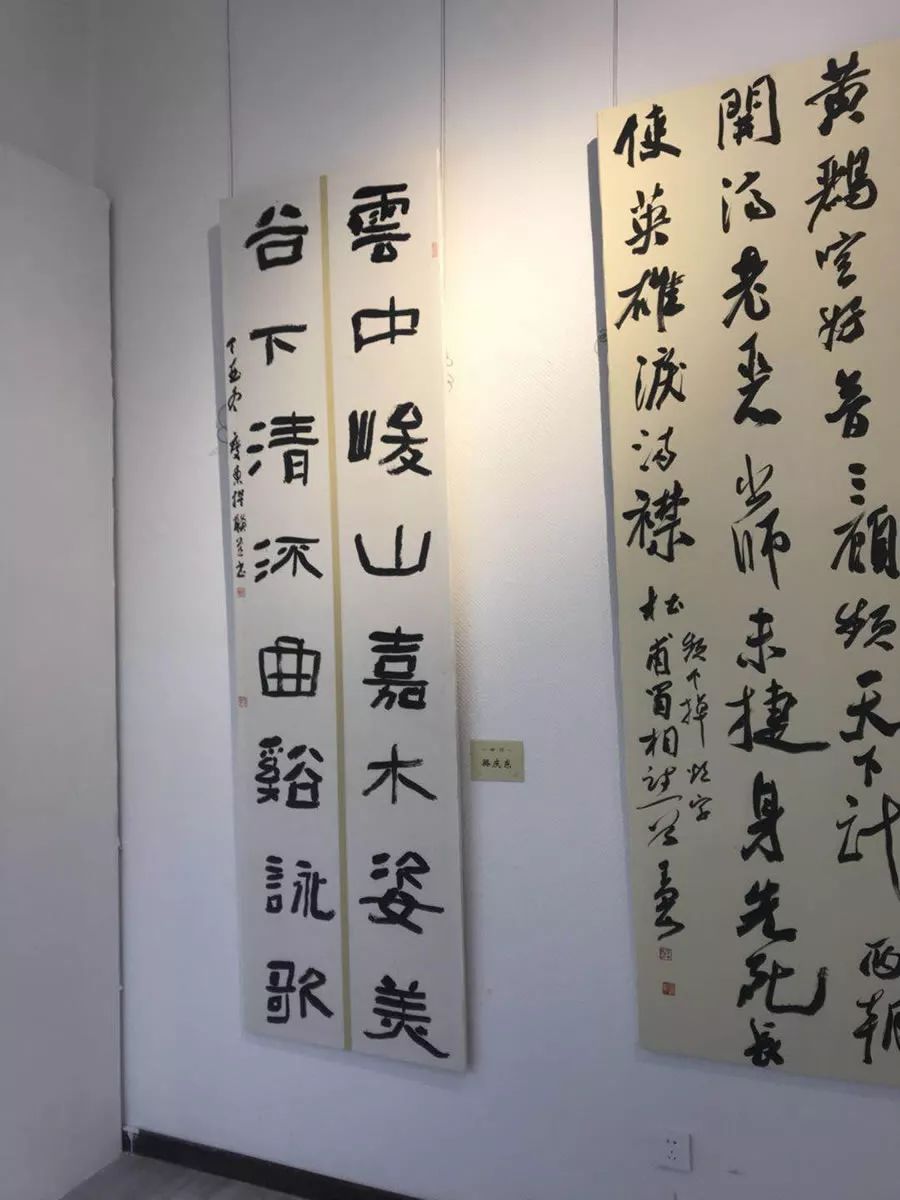 黄鸝空好音三顧頻天下計兩朝
開濟老臣心出師未捷身先死長
使英雄淚滿襟
杜甫蜀相
頻下掉煩字
雲中峻山嘉木姿美
谷下清流曲谿詠歌
丁酉冬慶東撰聯並書